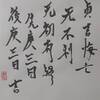 貞吉悔亡
无不利
无初有終
先庚三日
後庚三日吉